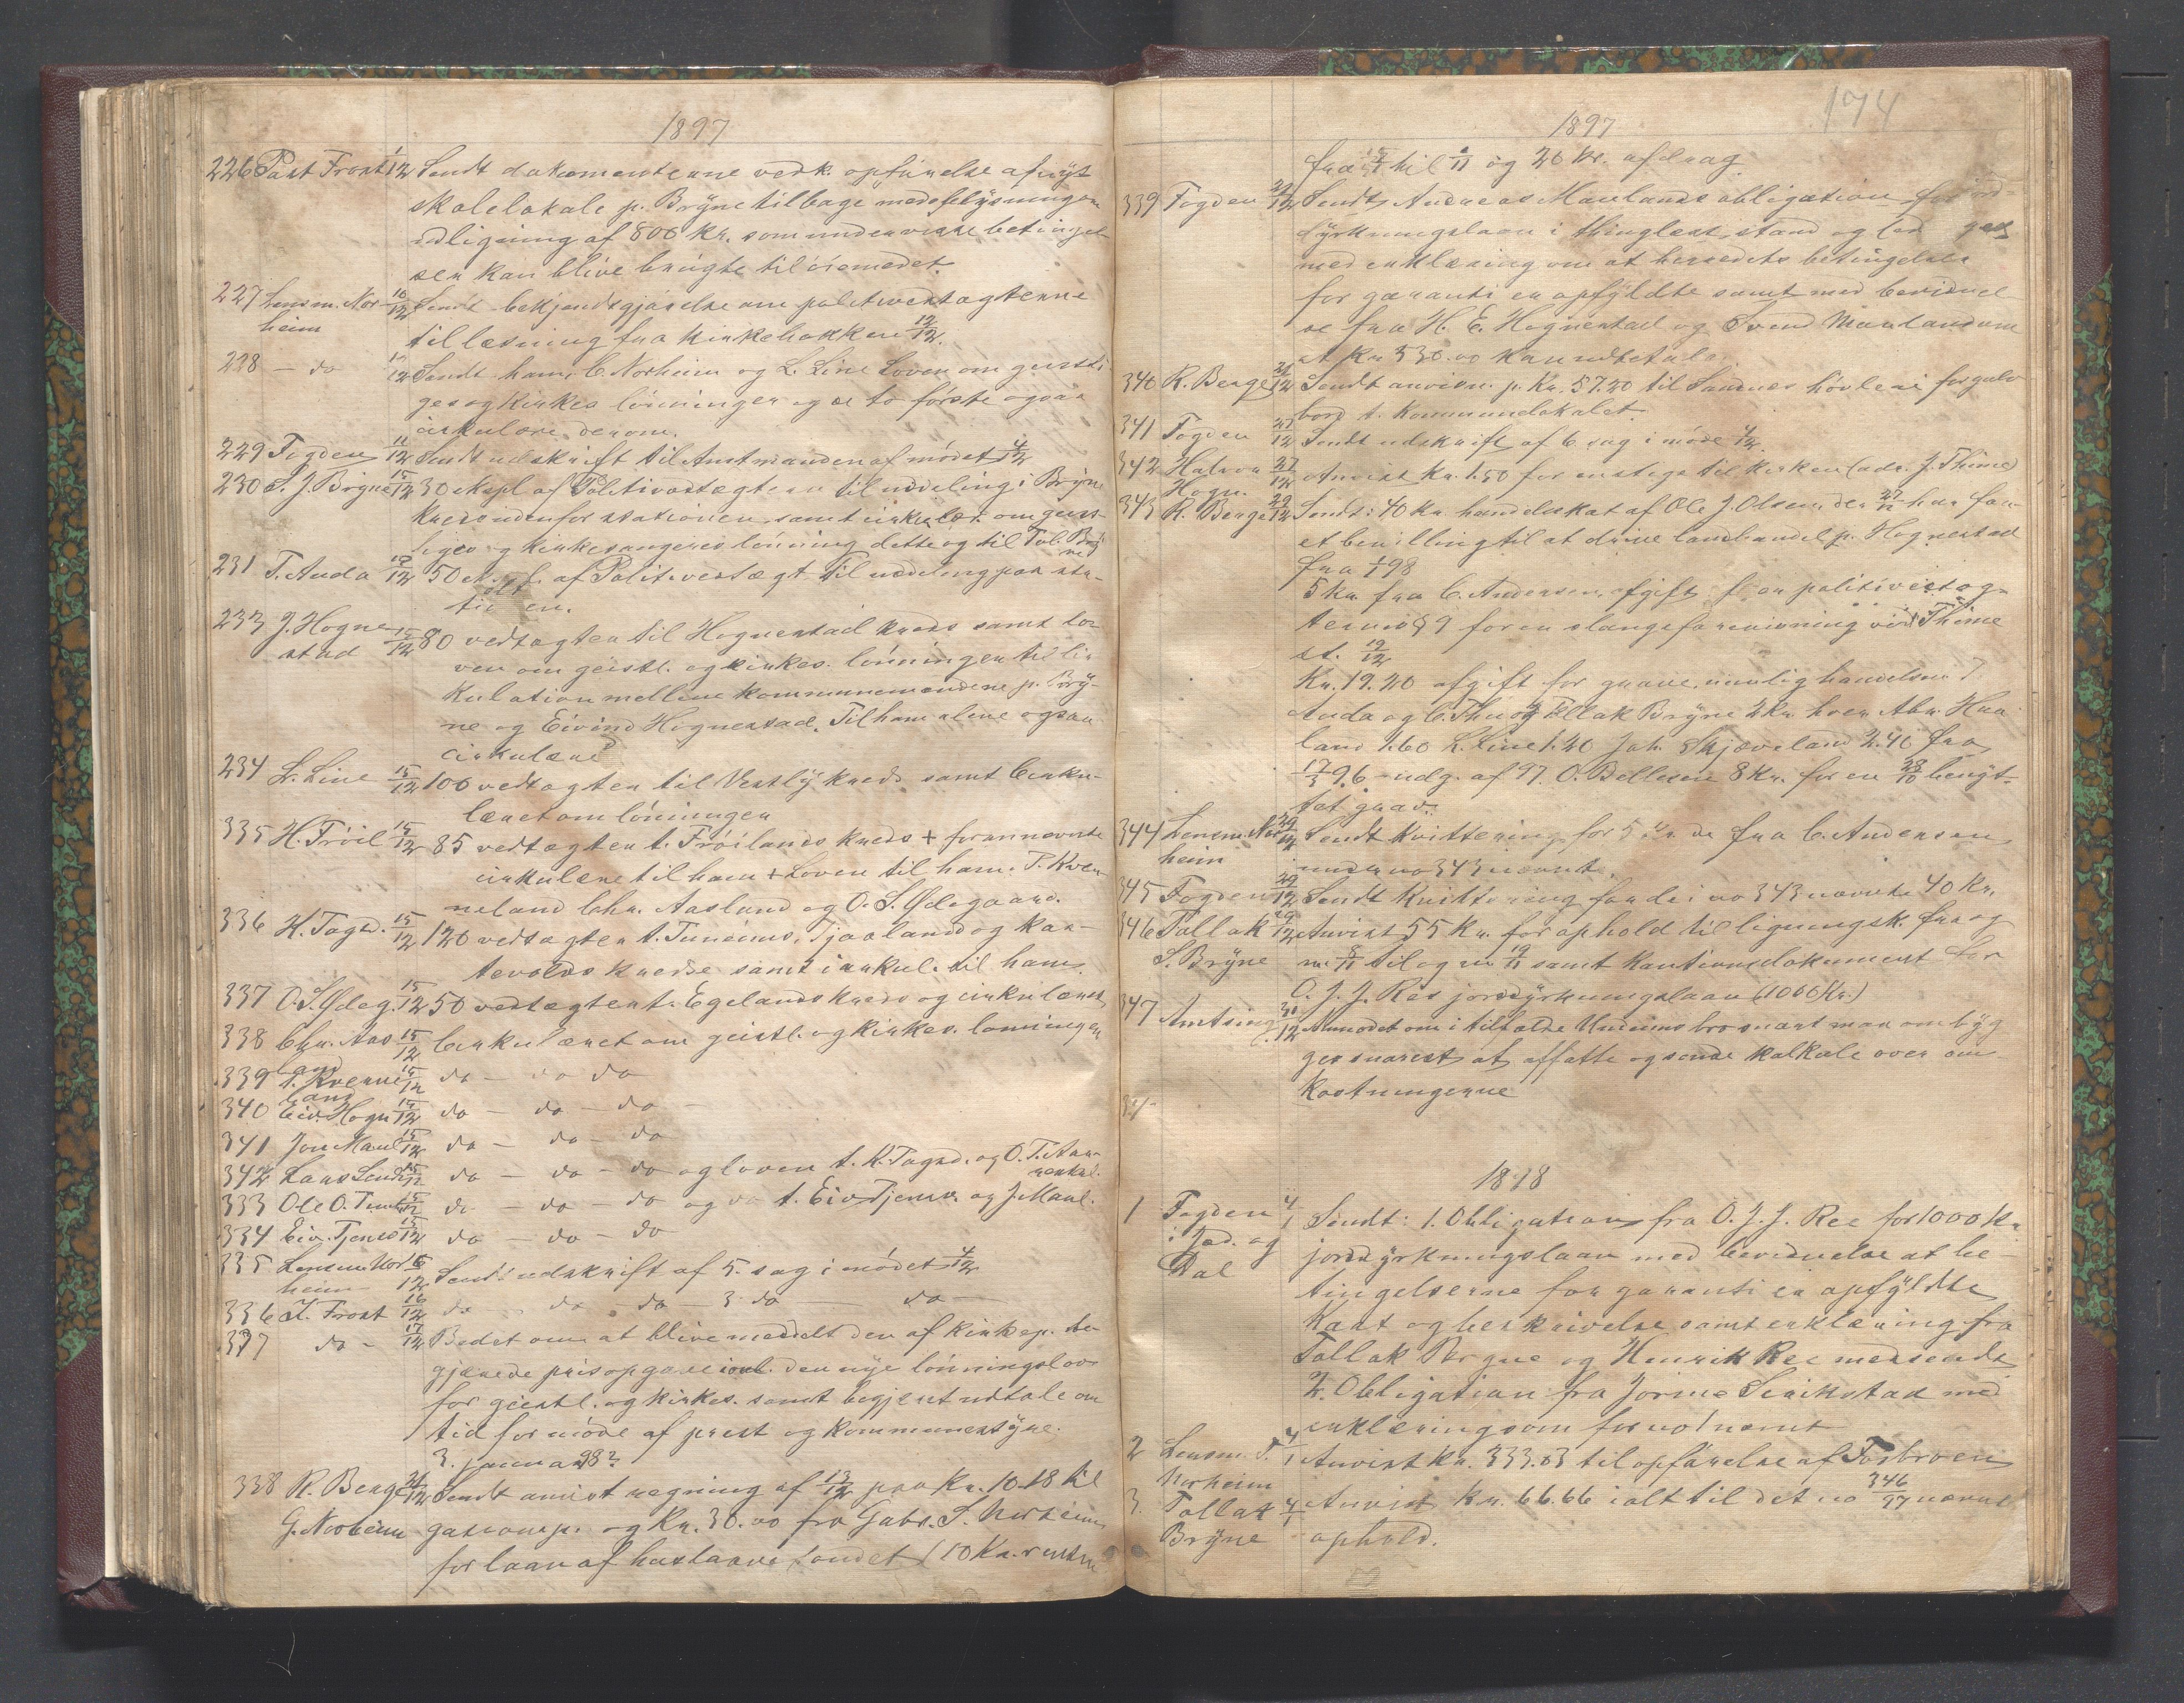 1897
226 Past Frost 1/12 Sendt dokumenterne vedk. opførelse af nyt
skolelokale p. Brÿne tilbage med oplÿsning om
udligning af 800 Kr. som under visse betingel
ser kan blive brugte til øiemedet.
227 Lensm. Nor 10/12 Sendt bekjendtgjørelse om politivedtægterne
heim
til læsning fra kirkebakken 12/12.
228 – do 10/12 Sendt ham, C. Norheim og L. Line Loven om geistli
ges og kirkes lønninger og de to første ogsaa
cirkulære derom.
229 Fogden 11/12 Sendt udskrift til Amtmanden af mødet 4/12
230 S. J. Brÿne 15/12 30 ekspl af Politivedtægterne til uddeling i Brÿne
kreds udenfor stationen, samt cirkulære om geist
liges og kirkesangeres lønning dette og til Tol. Brÿ
ne
231 T. Auda 15/12 50 ekspl. af Politivedtægt. til uddeling paa sta-
tionen.
233 J. Hogne 15/12 80 vedtægter til Hognestad kreds samt lo-
stad
ven om geistl. og kirkes. lønninger til cir
kulation mellem kommunemændene p. Brÿ-
ne og Eivind Hognestad. Til ham alene ogsaa
cirkulære
234 L. Line 15/12 100 vedtægter til Vestlÿ kreds samt Cirku-
læret om lønninger
335 H. Frøil 15/12 85 vedtægter t. Frøilands kreds + forannævnte
cirkulære til ham + Loven til ham. T. Kven
neland Chr. Aasland og O. S. Ødegaard.
336 K. Tagd. 15/12 120 vedtægter t. Tuneims, Tjaalands og Kar-
tevolds kredse samt cirkul. til ham.
337 O. S. Ødeg. 15/12 50 vedtægter t. Egelands kreds og cirkulæret
338 Chr. Aas 15/12 Cirkulæret om geistl. og kirkes. lønninger
land
339 T. Kvenne 15/12 do – do do
land
340 Eiv. Hogn 15/12 do – do – do –
341 Jon Maul 15/12 do – do – do
342 Lars Lende 15/12 do – do – do og loven t. K. Tagd. og O. T. Aar-
333 Ole O. Tunh 15/12 do – do – do og do t. Eiv Tjensv. og J. Maul.
334 Eiv. Tjensv 15/12 do – do – do
335 Lensm. Nor 15/12 Sendt udskrift af 5. sag i mødet 4/12
heim
336 T. Frost 16/12 do – do – do – 3 do do –
337 do – 17/12 Bedet om at blive meddelt den af kirkep. be
gjærede prisopgave den nÿe lønningslov
for geistl. og kirkes. samt begjært udtale om
tid for møde af prest og kommunestÿre.
3. januar 98?
338 R. Berge 21/12 Sendt anvist regning af 13/12 paa Kr. 10.18 til
G. Norheim og Kr. 30.00 fra Gabr. S. Norheim
for laan af huslaane fondet (10 Kr. renter
194
1897
fra til 1/11 og 20 kr. afdrag
339 Fogden 21/12 Sendt Andreas Maulands obligation for jord-
dÿrkningslaan i thinglæst stand og led ges
med erklæring om at herredets betingelser
for garanti er opfÿldte samt med bevidnel
se fra H. E. Hognestad og Svend Mauland om
at Kr 530.00 kan udbetales.
340 R. Berge 21/12 Sendt anvisn. p. Kr. 57.20 til Sandnes høvleri for gulv
bord t. Kommunelokalet.
341 Fogden 27/12 Sendt udskrift af 6. sag i møde 4/12.
342 Halvor 27/12 Anvist Kr. 1.50 for en stige til kirken (adr. J. Thime)
Hogn.
343 R. Berge 29/12 Sendt: 40 kr. handelskat af Ole J. Olsen der 27/12 har faa-
et bevilling til at drive landhandel p. Hognestad
fra 1/1 98
5 kr. fra C. Andersen, afgift for politivedtæg-
ternes § 9 for en slangeforevisning ved Thime
st. 12/12
Kr. 19.20 afgift for gravemælighandelsen T
Auda og C. Thu og Tollak Brÿne 2 kr. hver Abr. Haa
land 1.60 L. Line 1.20 Joh. Skjæveland 2.40 fra
17/3 96 – udg. af 97. O. Bellesen 8 kr. for en 28/10 benÿt-
tet grav.
344 Lensm. Nor 29/12 Sendt Kvittering for 5 kr. de fra C. Andersen
heim
under no 343 nævnte.
345 Fogden 29/12 Sendt Kvittering for de i no 343 nævnte 40 Kr.
346 Tollak 29/12 Anvist 55 Kr. for ophold til ligningsk. fra og
S. Brÿne
m. 8/11 til og m 19/11 samt Kautionsdokument for
O. J. J. Ree jorddÿrkningslaan (1000 Kr.)
347 Amtsing. 30/12 Anmodet om i tilfælde Undeims bro snart maa ombÿg
ges snarest at affatte og sende kalkule over om
kostningerne
34-
1898
1 Fogden 4/1 Sendt: 1. Obligation fra O. J. J. Ree for 1000 Kr
i Jæd. og
Dal
jorddÿrkningslaan med bevidnelse at be-
tingelserne for garanti er opfÿldte
Kart og beskrivelse samt erklæring fra
Tollak Brÿne og Henrik Ree medsendt
2. Obligation fra Jorine Serikstad med
erklæring som for no 1 nævnt
2 Lensm. T. 4/1 Anvist Kr. 333.03 til opførelse af Fosbroen
Norheim
3. Tollak 4/1 Anvist Kr. 66.66 ialt til det no 346/97 nævnt
Brÿne ophold.